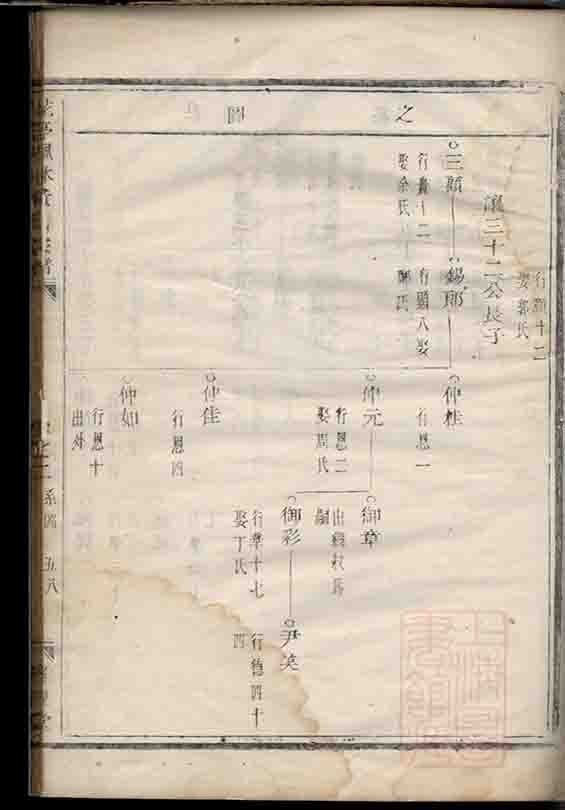 之
圖
行顯十二
娶郭氏
讓三十二公長子
三顯
行壽十二
娶余氏
錫郎
行顯八娶
鄭氏
仲桂
行恩一
仲元
行恩二
娶周氏
御章
出繼
嗣
御彩
行孝十七
娶丁氏
尹英
行德四十
四
仲佳
行恩四
仲如
行恩十
出外
系圖
五八
上海圖書館藏